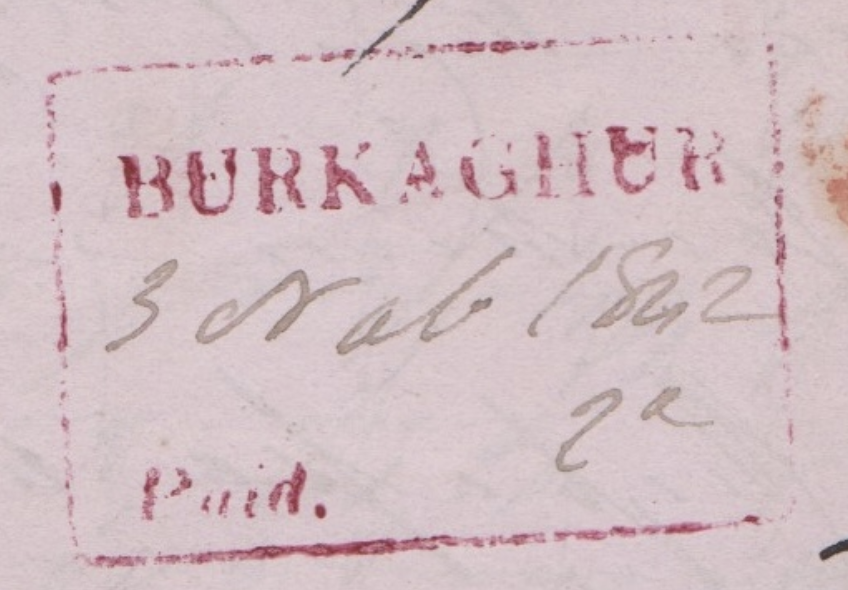 BURKAGHUR
3 1842
2ᵃ
Paid.